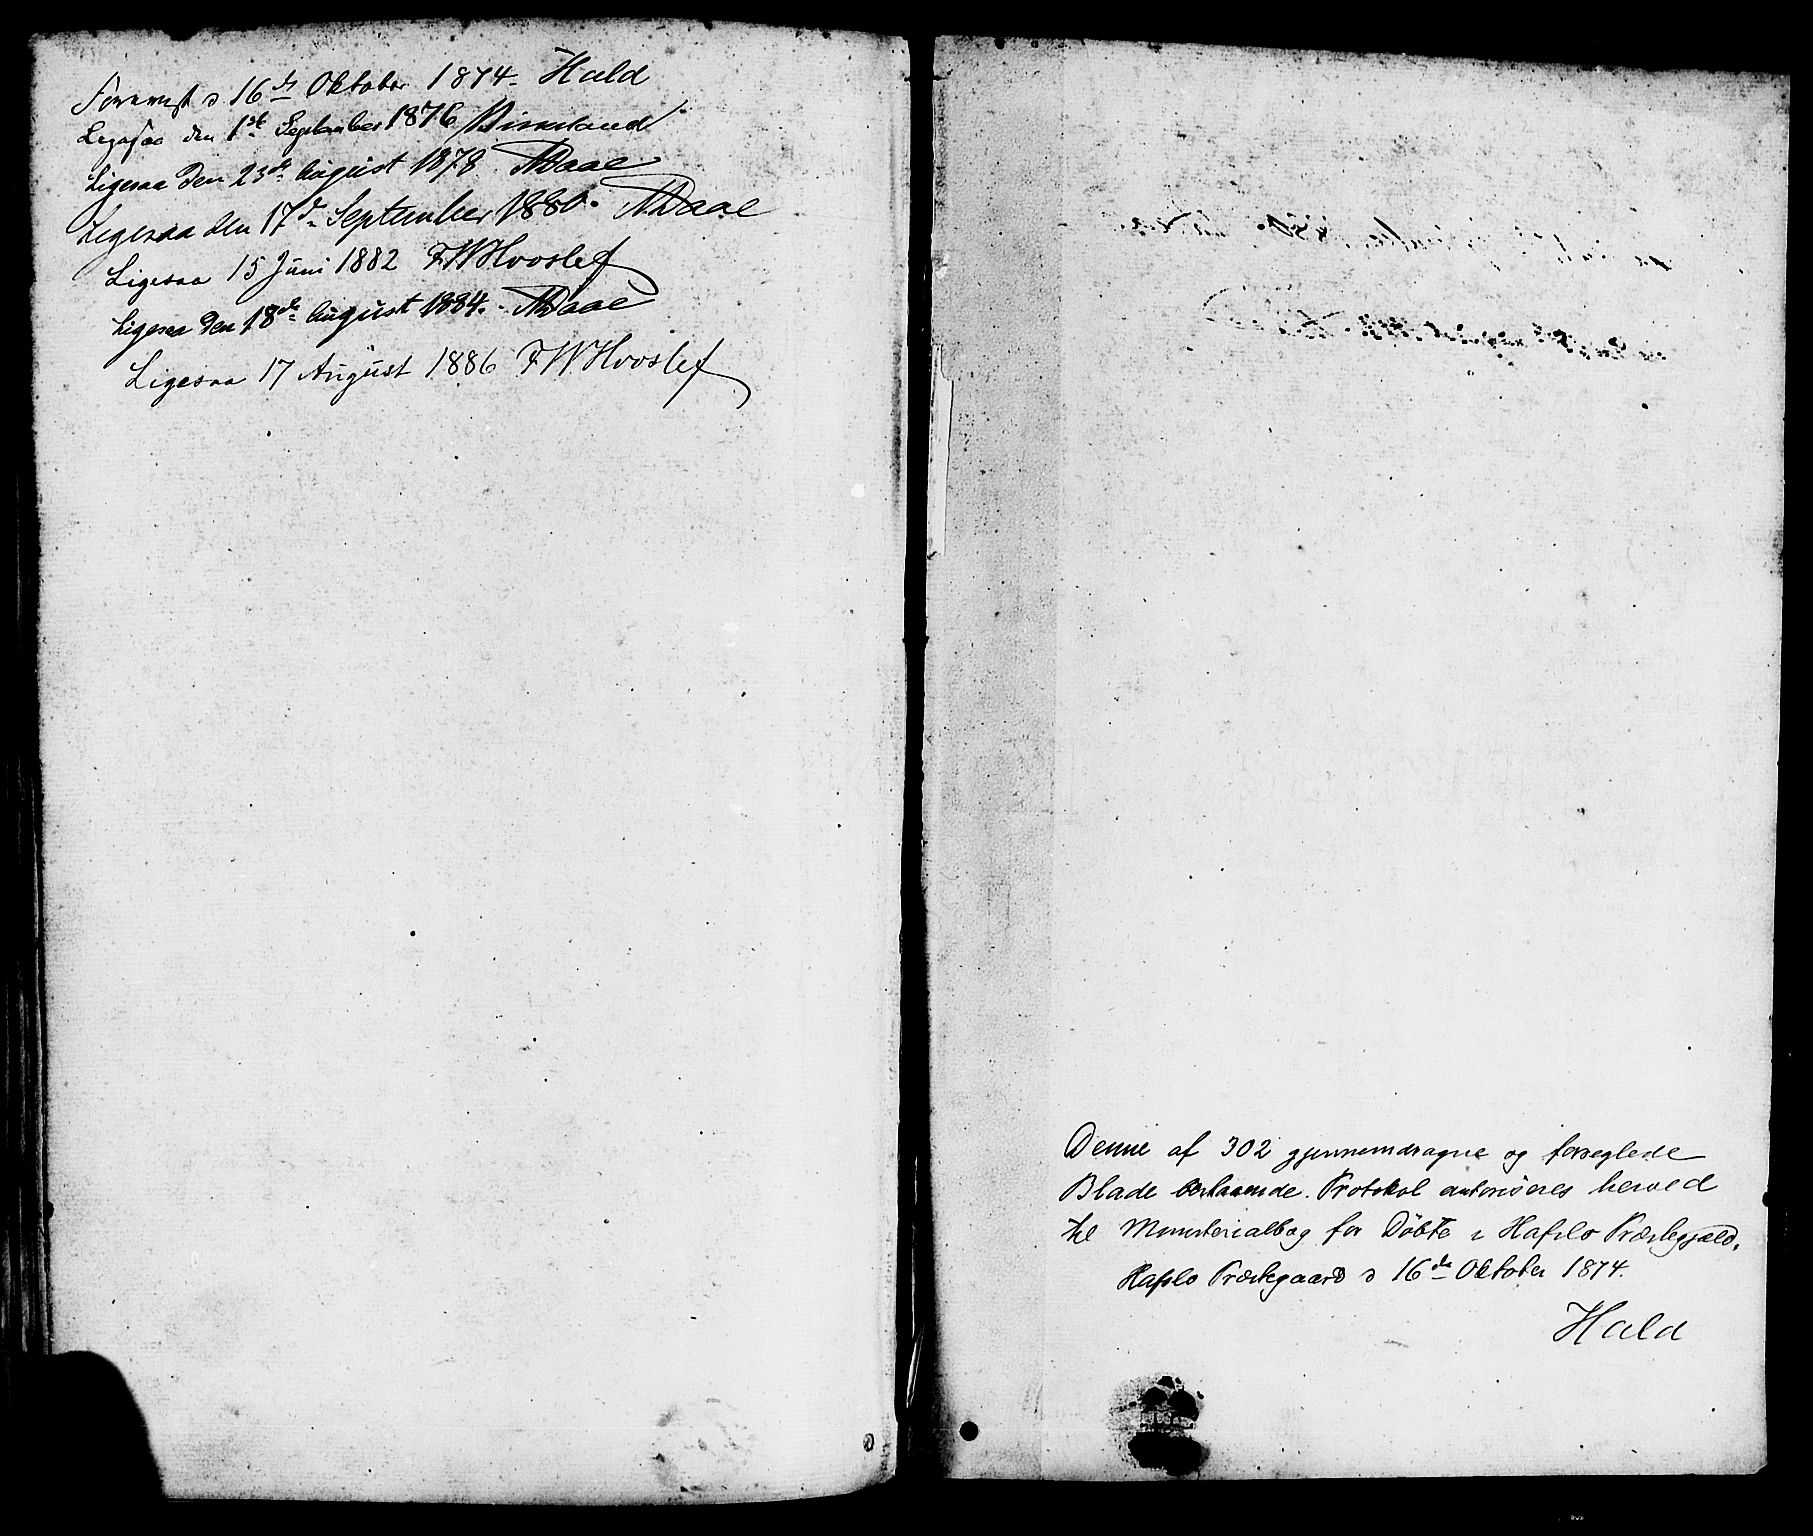 Forevist d 16de Oktober 1874. Hald
Ligesaa den 1ste September 1876 Birkeland
Ligesaa den 23de August 1878 ADaae
Ligesaa den 17de September 1880. ADaae
Ligesaa 15 Juni 1882 FWHvoslef
Ligesaa den 18de August 1884. ADaae
Ligesaa 17 August 1886 FWHvoslef
Denne af 302 gjennemdragne og forseglede
Blade bestaaende Protokol autoriseres herved
til Ministerialbog for Döbte i Hafslo Præstegjæld.
Hafslo Præstegaard d 16de Oktober 1874.
Hald